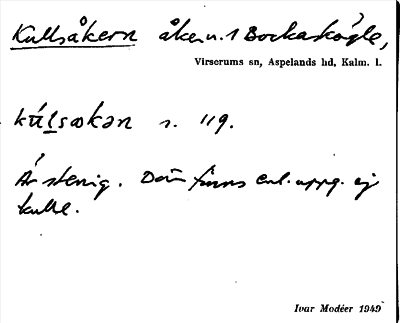 Kullsåkern åker u. 1 Bockaskögle,
Virserums sn, Aspelands hd, Kalm. l.
kúlsåkən s. 119.
Är stenig. Där finns enl. uppg. ej
kulle.
Ivar Modéer 1949